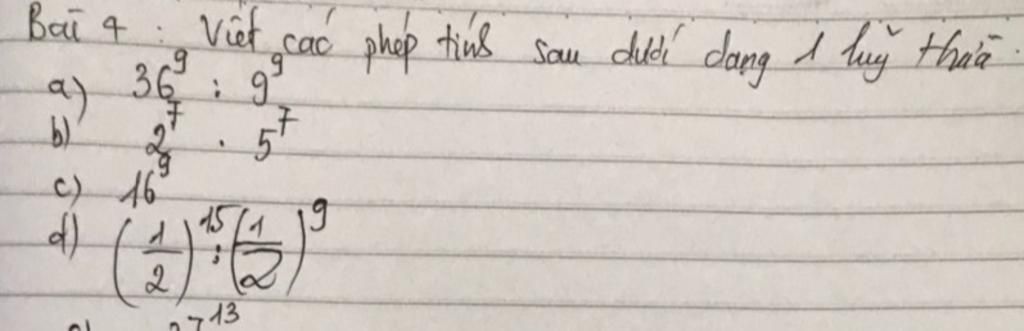 Bài 4 : Viết các phép tính sau dưới dạng 1 luỹ thừa.
a) 36⁹ : 9⁹
b) 2⁷ . 5⁷
c) 16⁹
d) (1/2)¹⁵ : (1/2)⁹